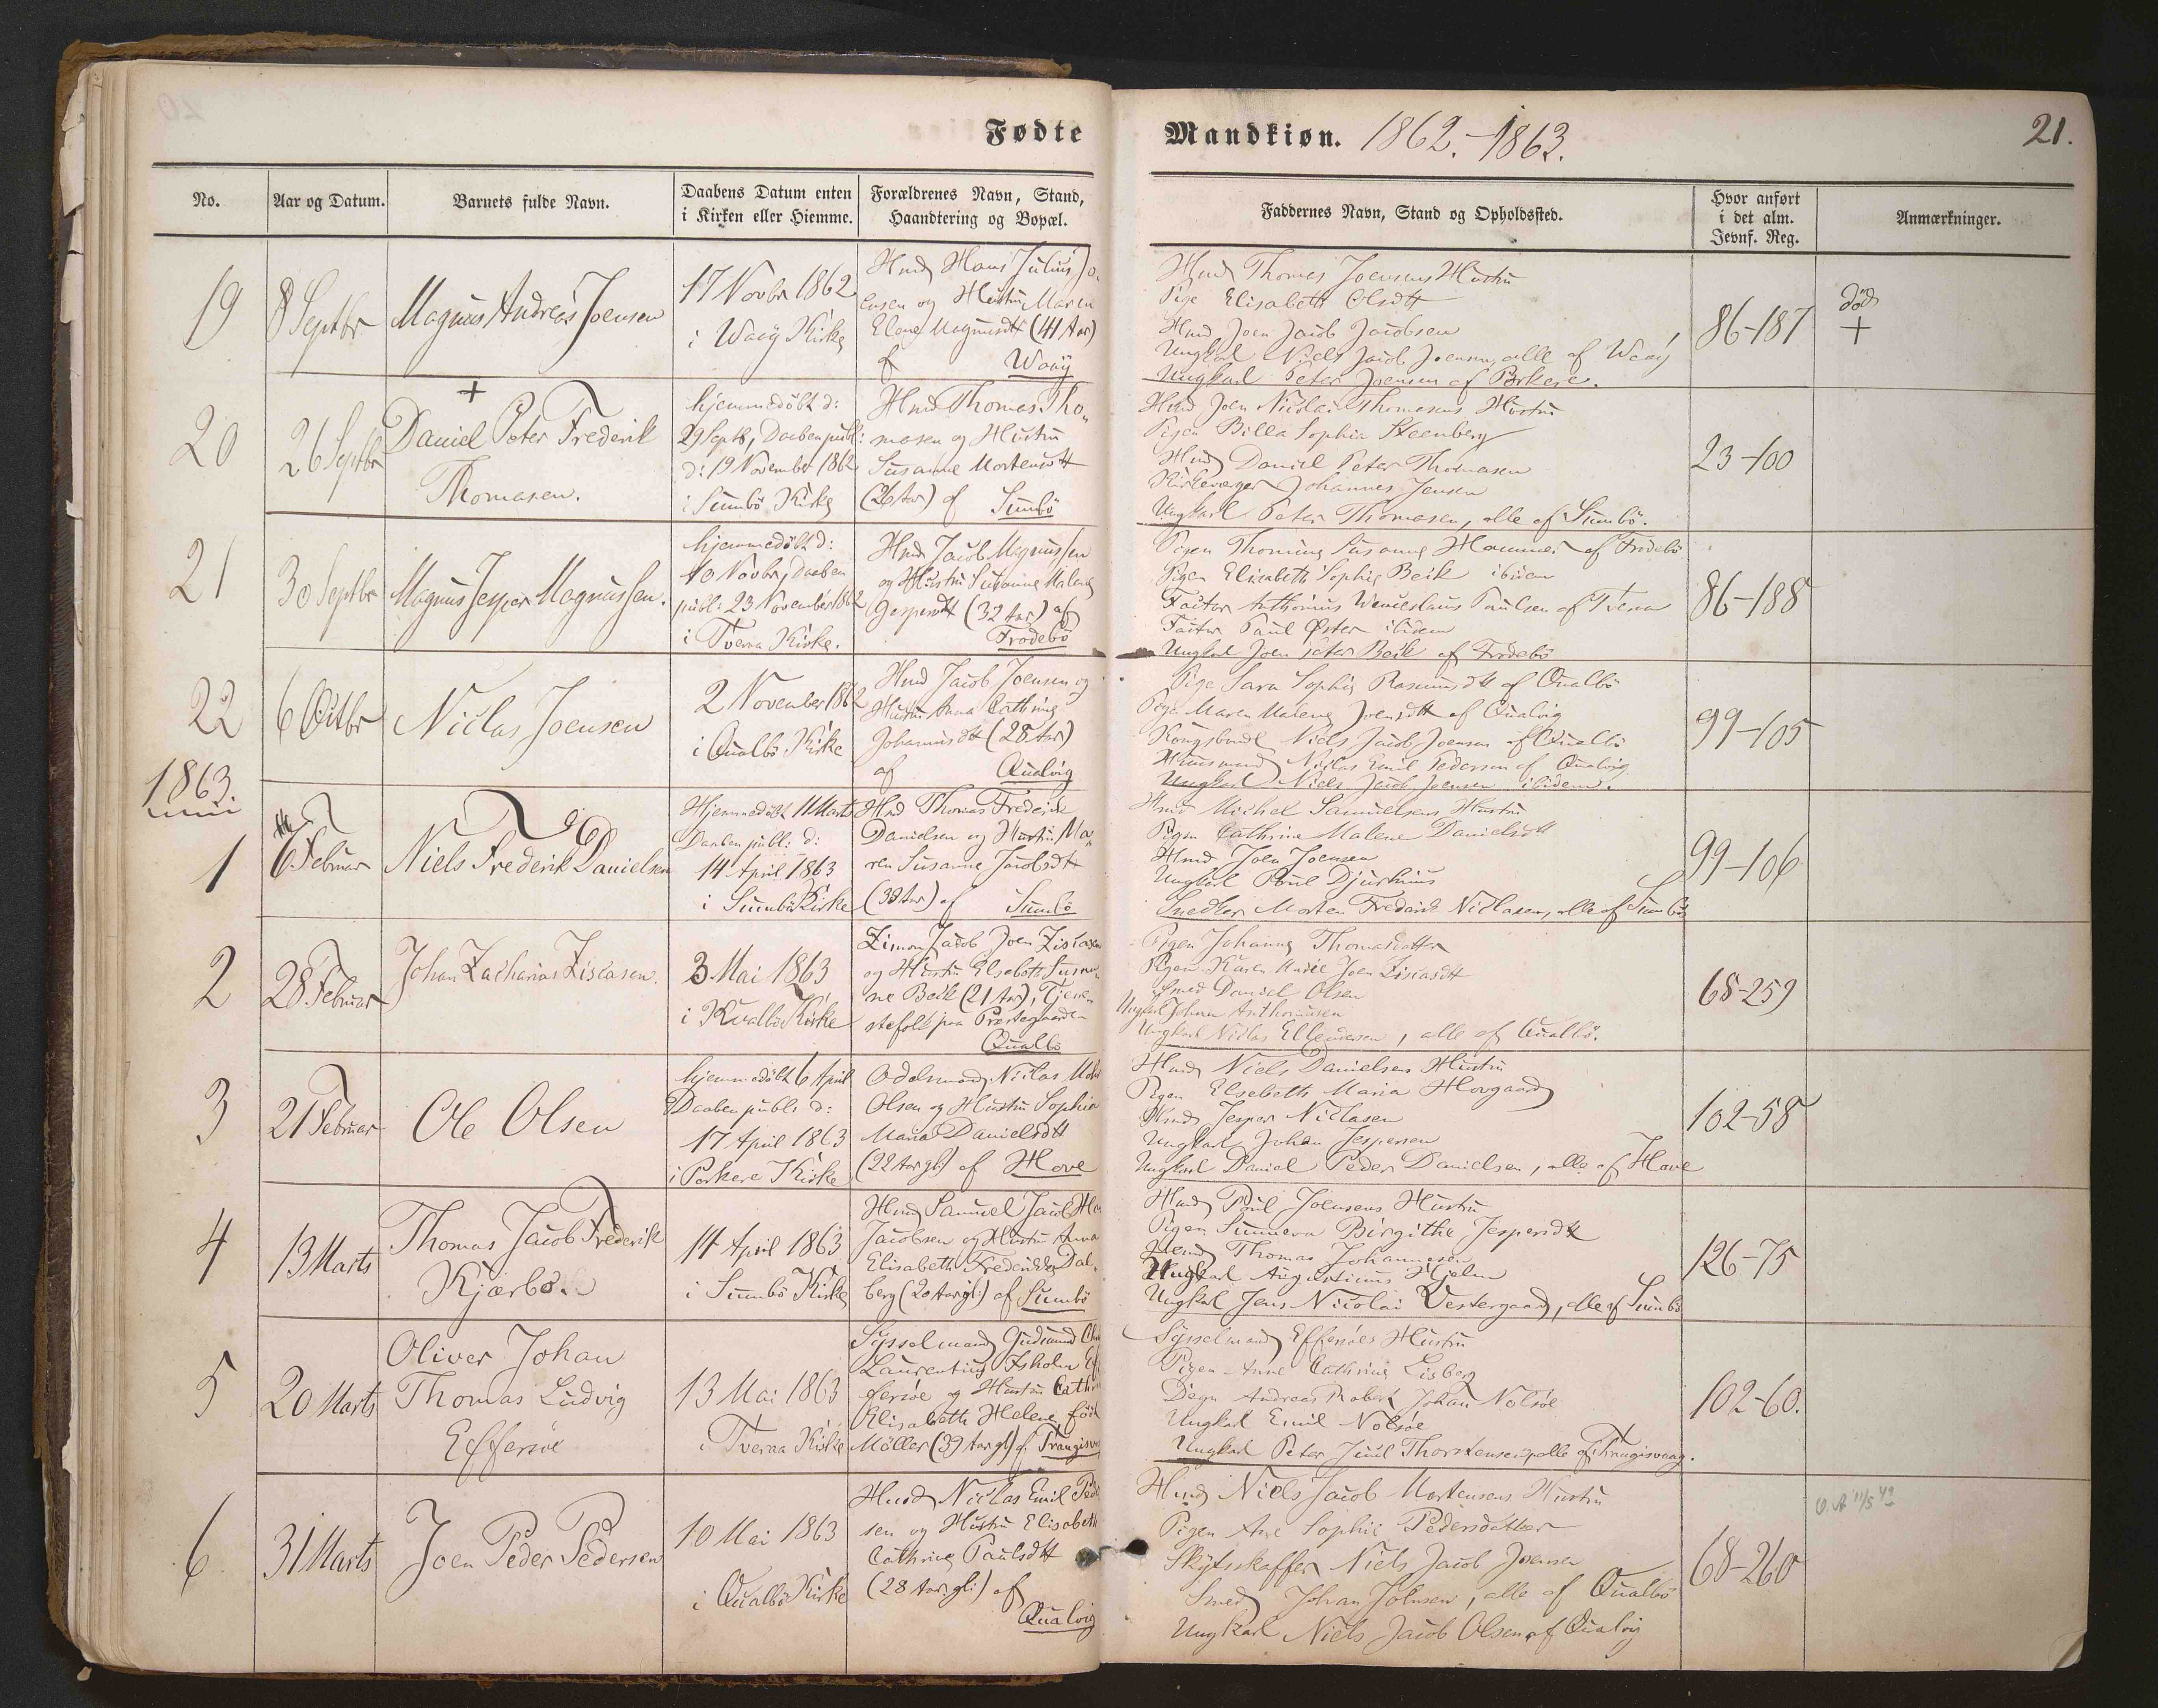 Fødte
Mandkiøn. 1862.-1863.
21.
No.
Aar og Datum.
Barnets fulde Navn.
Daabens Datum enten
i Kirken eller Hiemme.
Forældrenes Navn, Stand,
Haandtering og Bopæl.
Faddernes Navn, Stand og Opholdssted.
Hvor anført
i det alm.
Jevnf. Reg.
Anmærkninger.
19
8 Septbr
Magnus Andreas Joensen
17 Novbr 1862
i Waaÿ Kirke
Hmd Hans Julius Jo-
ensen og Hustru Maren
Elene Magnusdtt (41 Aar)
af Waaÿ
Hmd Thomas Joensens Hustru
Pige Elisabeth Olsdtt
Hmd Joen Jacob Jacobsen
Ungkarl Niels Jacob Joensen, alle af Waaÿ
Ungkarl Peter Joensen af Porkere.
86-187
død
+
20
26 Septbr
+
Daniel Peter Frederik
Thomasen.
hjemmedøbt d:
29 Septb, Daaben publ:
d: 19 November 1862
i Sumbö Kirke
Hmd Thomas Tho-
masen og Hustru
Susanne Mortensdtt
(26 Aar) af Sumbö
Hmd Joen Nicolai Thomasens Hustru
Pigen Billa Sophia Steenberg
Hmd Daniel Peter Thomasen
Kirkeværger Johannes Jensen
Ungkarl Peter Thomasen, alle af Sumbö.
23-100
21
30 Septbr
Magnus Jesper Magnussen.
hjemmedöbt d:
10 Novbr, Daaben
publ: 23 November 1862
i Tveraa Kirke.
Hmd Jacob Magnussen
og Hustru Susanne Malene
Jespersdtt (32 Aar) af
Frodebö
Pigen Thomine Susanne Hammer af Frodebö
Pigen Elisabeth Sophie Beck ibidem
Factor Anthonius Wenceslaus Paulsen af Tveraa
Factor Paul Øster ibidem
Ungkarl Joen Peter Beck af Frodebö
86-188
22
6 Octbr
Niclas Joensen
2 November 1862
i Qualbö Kirke
Hmd Jacob Joensen og
Hustru Anna Cathrine
Johannesdtt (28 Aar)
af Qualvig
Pige Sara Sophie Rasmusdtt af Qualbö
Pige Maren Malene Joensdtt af Qualvig
Kongsbonde Niels Jacob Joensen af Qualbö
Huusmand Niclas Emil Pedersen af Qualvig
Ungkarl Niels Jacob Joensen ibidem.
99-105
1863.
1
6 Februar
Niels Frederik Danielsen
Hjemmedöbt 11 Marts
Daaben publ: d:
14 April 1863
i Sumbö Kirke
Hmd Thomas Frederik
Danielsen og Hustru Ma-
ren Susanne Jacobsdtt
(38 Aar) af Sumbö
Hmd Michel Samuelsens Hustru
Pigen Cathrine Malene Danielsdtt
Hmd Joen Joensen
Ungkarl Poul Djurhuus
Snedker Morten Frederik Niclasen, alle af Sumbö
99-106
2
28 Februar
Johan Zacharias Ziscasen.
3 Mai 1863
i Kvalbö Kirke
Zimon Jacob Joen Ziscasen
og Hustru Elsebeth Susan-
ne Beck (21 Aar), Tjene-
stefolk paa Præstegaarden
Qualbö
Pigen Johanne Thomasdatter
Pigen Karen Marie Joen Ziscasdtt
Smed Daniel Olsen
Ungkarl Johan Anthoniusen
Ungkarl Niclas Ellendersen, alle af Qualbö.
68-259
3
21 Februar
Ole Olsen
hjemmedöbt 6 April
Daaben publ: d:
17 April 1863
i Porkere Kirke
Odelsmand Niclas
Olsen og Hustru Sophia
Maria Danielsdtt
(22 Aar gl.) af Hove
Hmd Niels Danielsens Hustru
Pigen Elsebeth Maria Hovgaard
Hmd Jesper Niclasen
Ungkarl Johan Jespersen
Ungkarl Daniel Peder Danielsen, alle af Hove
102-58
4
13 Marts
Thomas Jacob Frederik
Kjærbö.
14 April 1863
i Sumbö Kirke
Hmd Samuel Jacob
Jacobsen og Hustru Anna
Elisabeth Frederikke Dal-
berg (20 Aar gl.) af Sumbö
Hmd Poul Joensens Hustru
Pigen Sunneva Birgithe Jespersdtt
Hmd Thomas Johannesen
Ungkarl Augustinus Hjelm
Ungkarl Jens Nicolai Vestergaard, alle af Sumbö
126-75
5
20 Marts
Oliver Johan
Thomas Ludvig
Effersöe
13 Mai 1863
i Tveraa Kirke
Sysselmand Gudmund
Laurentius Isholm Ef
fersöe og Hustru Cathr
Elisabeth Helene, född
Möller (39 Aar gl) af Trangisv
Sysselmand Effersöes Hustru
Pigen Anne Cathrine Lisberg
Degn Andreas Robert Johan Nolsöe
Ungkarl Emil Nolsöe
Ungkarl Peter Juul Thorstensen, alle af Trangisvaag.
102-60.
6
31 Marts
Joen Peder Pedersen
10 Mai 1863
i Qualbö Kirke
Hmd Niclas Emil Peder
sen og Hustru Elisabeth
Cathrine Paulsdtt
(28 Aar gl:) af
Qualvig
Hmd Niels Jacob Mortensens Hustru
Pigen Ane Sophie Pedersdatter
Skydsskaffer Niels Jacob Joensen
Smed Johan Johnsen, alle af Qualbö
Ungkarl Niels Jacob Olsen af Qualvig
68-260